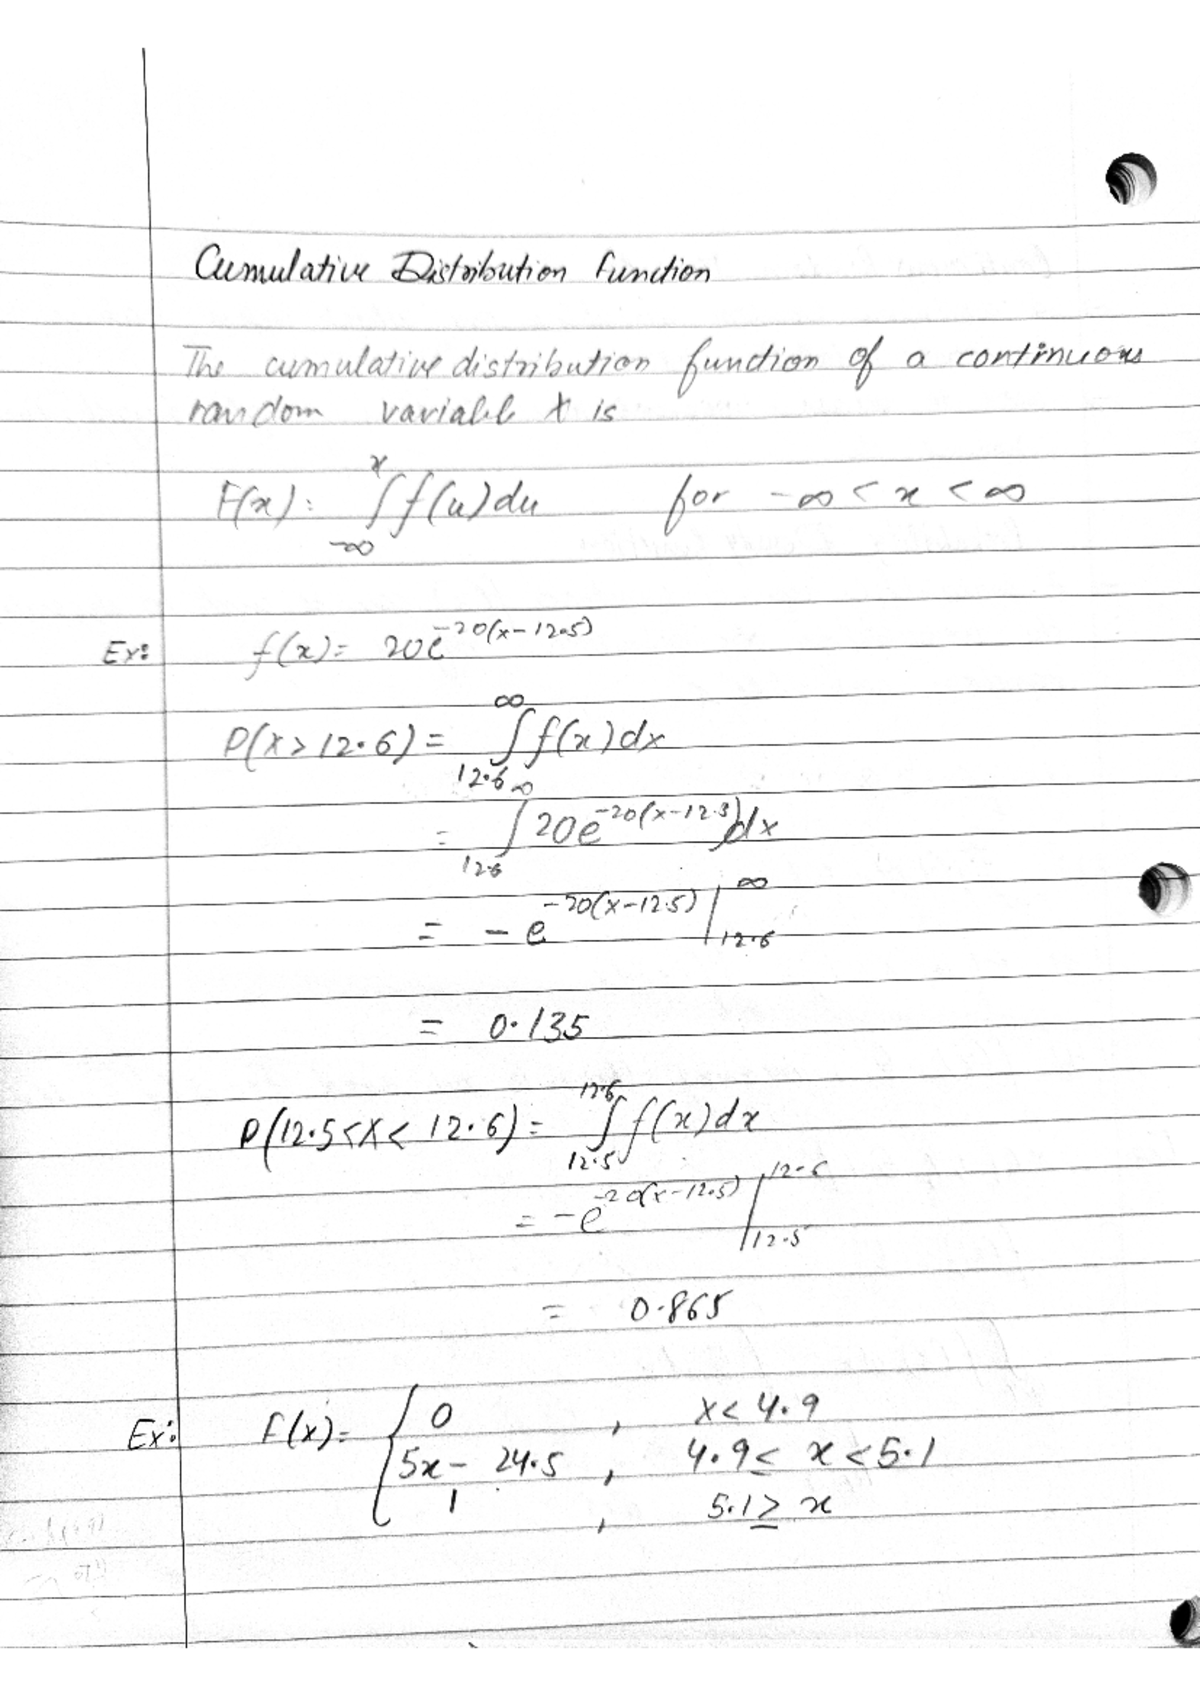 Cumulative Distribution Function
The cumulative distribution function of a continuous
random variable X is
F(x) = ∫_{-∞}^{x} f(u) du for -∞ < x < ∞
Ex: f(x) = 20e^{-20(x-12.5)}
P(X > 12.6) = ∫_{12.6}^{∞} f(x) dx
= ∫_{12.6}^{∞} 20e^{-20(x-12.5)} dx
= -e^{-20(x-12.5)} |_{12.6}^{∞}
= 0.135
P(12.5 < X < 12.6) = ∫_{12.5}^{12.6} f(x) dx
= -e^{-20(x-12.5)} |_{12.5}^{12.6}
= 0.865
Ex: F(x) = { 0 , x < 4.9
5x - 24.5 , 4.9 ≤ x < 5.1
1 , 5.1 ≥ x